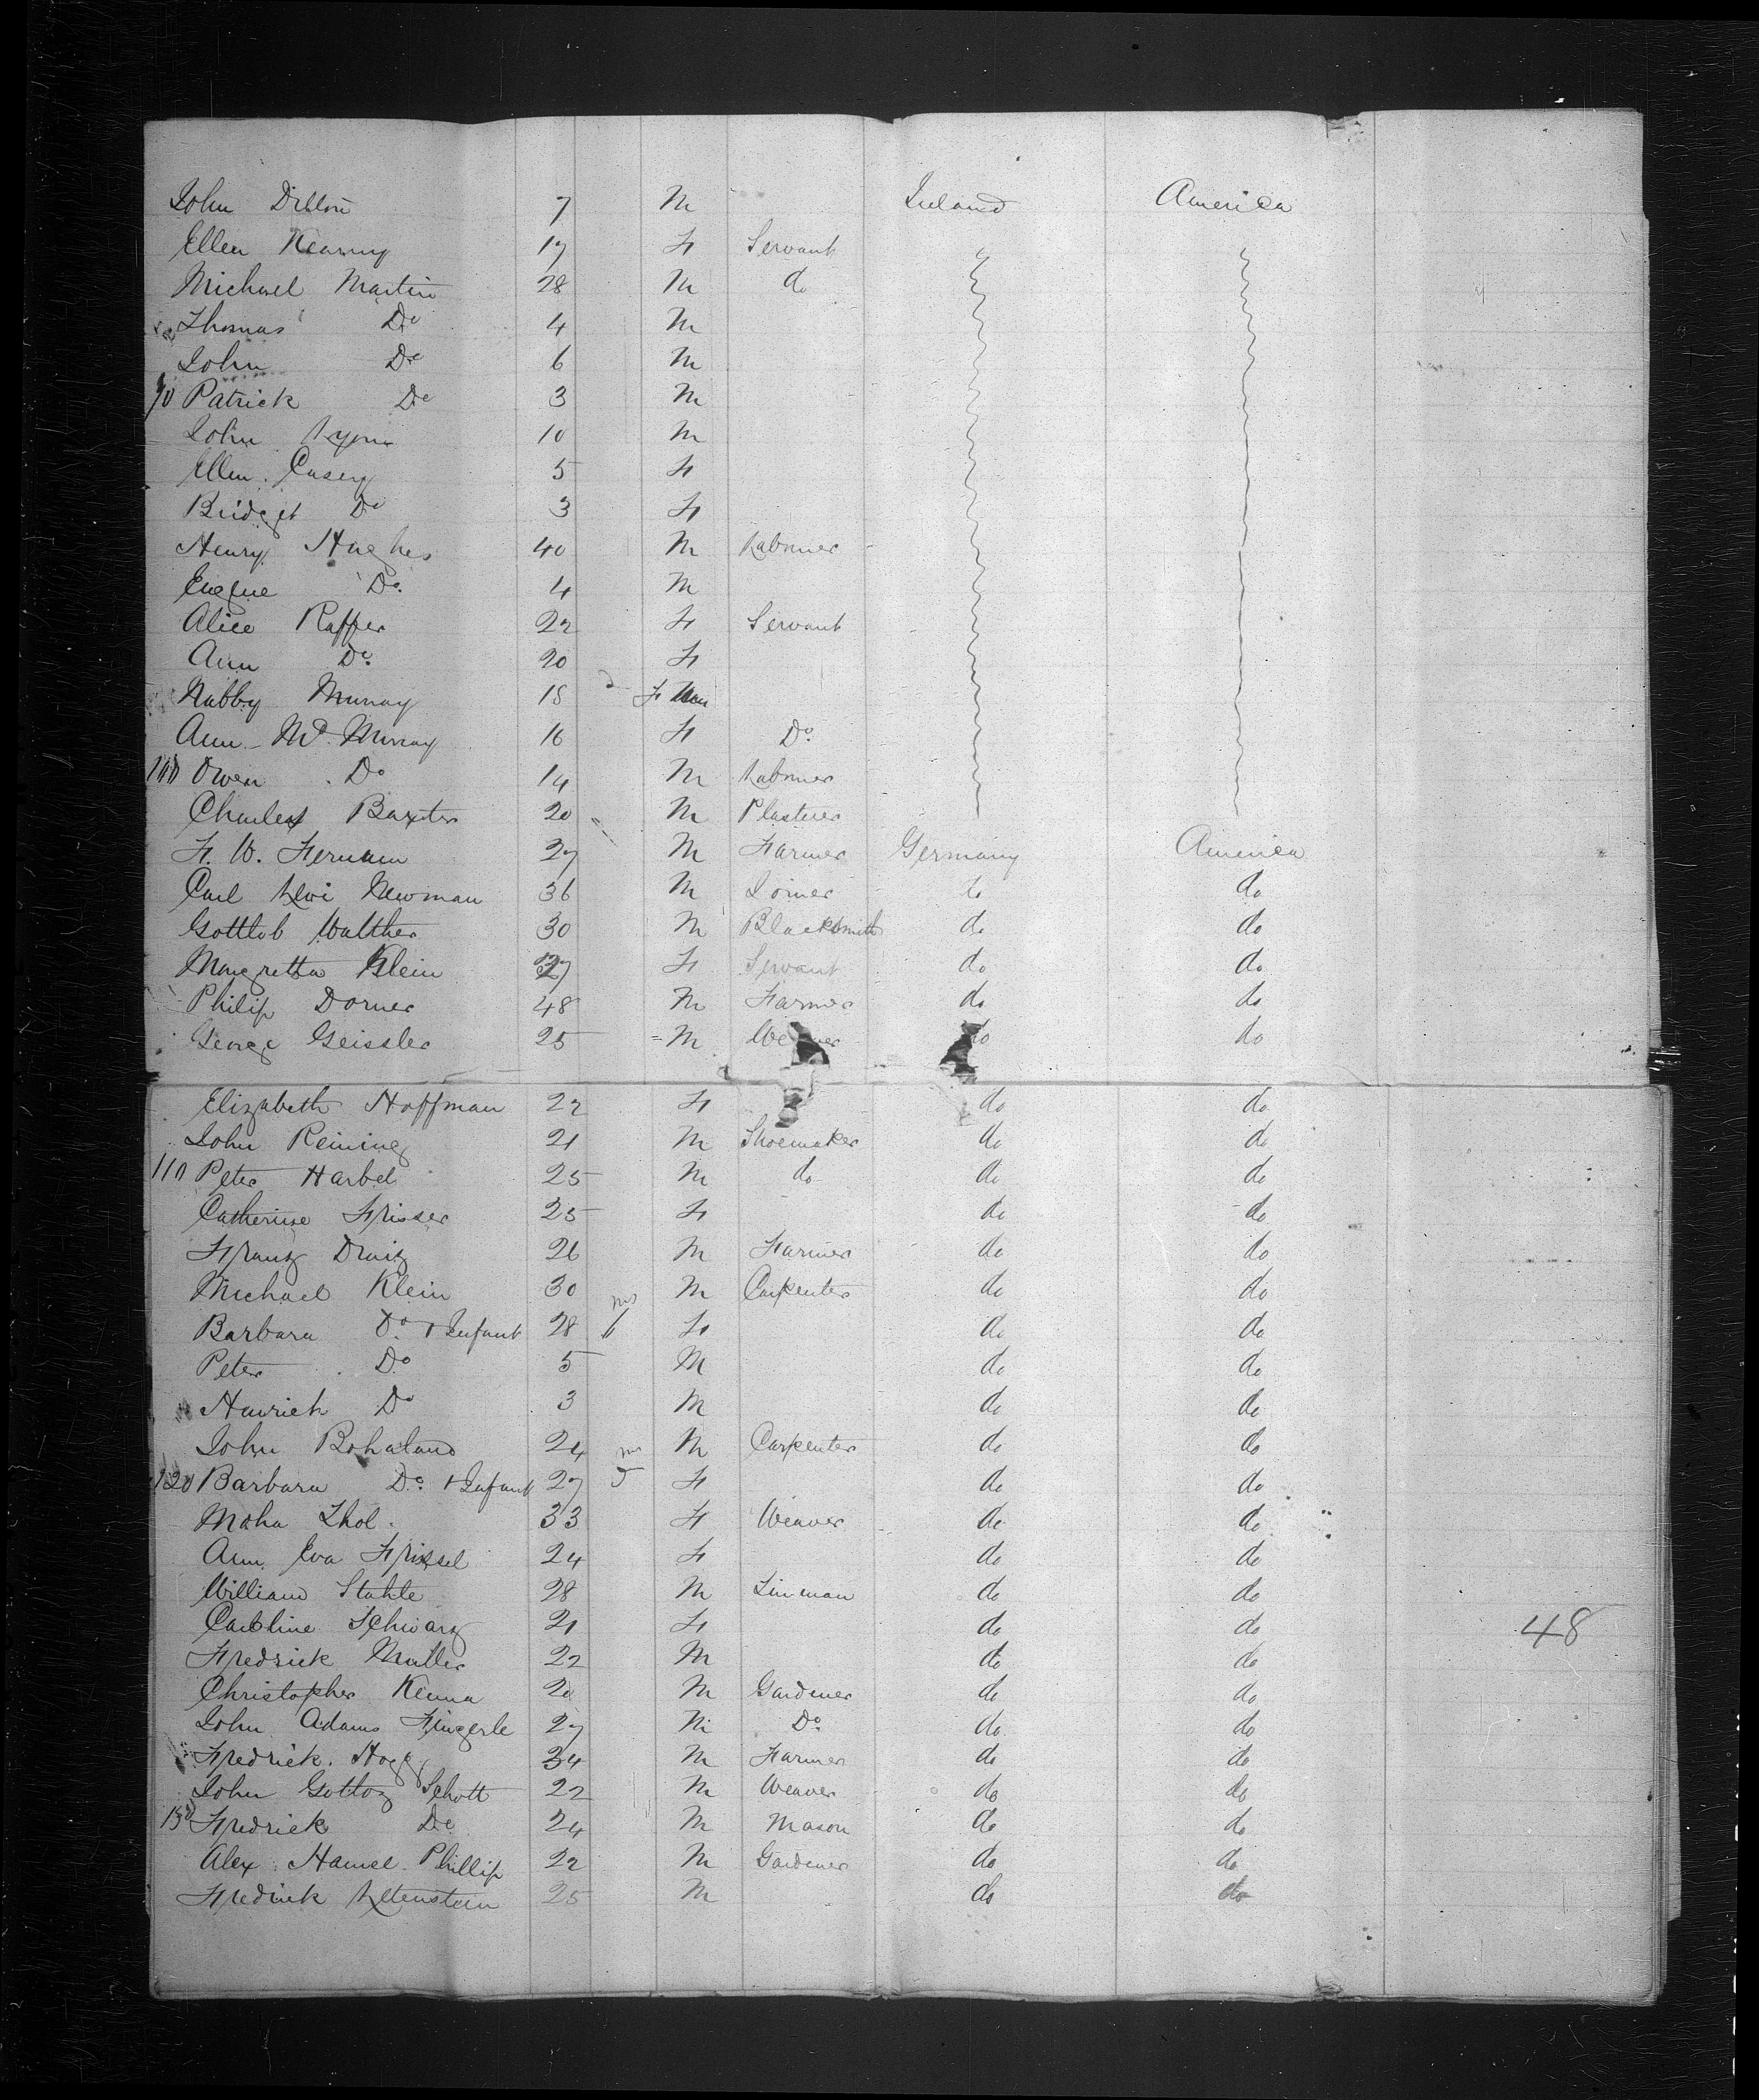 John Dillon 7 M Ireland America
Ellen Kearny 17 F Servant
Michael Martin 28 M do
Thomas Do 4 M
John Do 6 M
90 Patrick Do 3 M
John Lyons 10 M
Ellen Casey 5 F
Bridget Do 3 F
Henry Hughes 40 M Labourer
Eugene Do. 4 M
Alice Rapper 22 F Servant
Ann Do. 20 F
Nabby Murray 18 F
Ann Mc Murray 16 F Do.
100 Owen Do 14 M Labourer
Charles Baxter 20 M Plasterer
F. W. Fernam 27 M Farmer Germany America
Carl Levi Newman 36 M Joiner do do
Gottlob Walther 30 M Blacksmith do do
Margretta Klein 27 F Servant do do
Philip Dorner 48 M Farmer do do
George Geissler 25 M do do
Elizabeth Hoffman 22 F do do
John Reining 21 M Shoemaker do do
110 Peter Harbel 25 M do do do
Catherine Frisser 25 F do do
Franz 26 M Farmer do do
Michael Klein 30 M Carpenter do do
Barbara Do. + Infant 28 ms 6 F do do
Peter Do 5 M do do
Henrich Do 3 M do do
John 24 M Carpenter do do
120 Barbara Do. + Infant 27 ms 5 F do do
Thol. 33 F Weaver do do
Ann Eva Frissel 24 F do do
William Stahle 28 M do do
Caroline Schwarz 21 F do do 48
Fredrick Muller 22 M do do
Christopher Kenna 20 M Gardener do do
John Adams Fingerle 27 M Do. do do
Fredrick. Hogg 34 M Farmer do do
John Schott 22 M Weaver do do
130 Fredrick Do 24 M Mason do do
Alex Hamel Phillip 22 M Gardener do do
Fredrick Letenstein 25 M do do